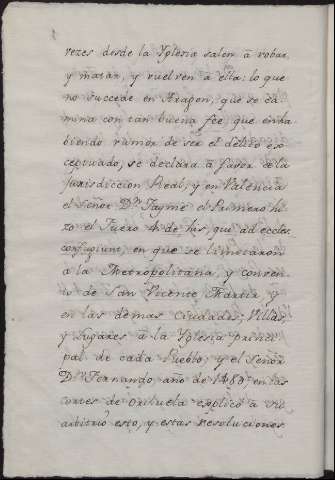 vezes desde la Yglesia salen â robar,
y matar, y vuelven â ella: lo que
no succede en Aragon, que se ca-
mina con tan buena fee, que en ha-
biendo rumor de ser el delito ex-
ceptuado, se declara â favor de la
Jurisdiccion Real; y en Valencia
el Señor Dn. Jayme el Primero hi-
zo el Fuero 4 de his, qui ad eccles.
confugiunt, en que se limitaron
â la Metropolitana, y conven-
to de San Vicente Martir, y
en las demas Ciudades, Villas,
y Lugares â la Yglesia princi-
pal de cada Pueblo; y el Señor
Dn. Fernando, año de 1488 en las
cortes de Orihuela explicó â su
arbitrio esto, y estas resoluciones